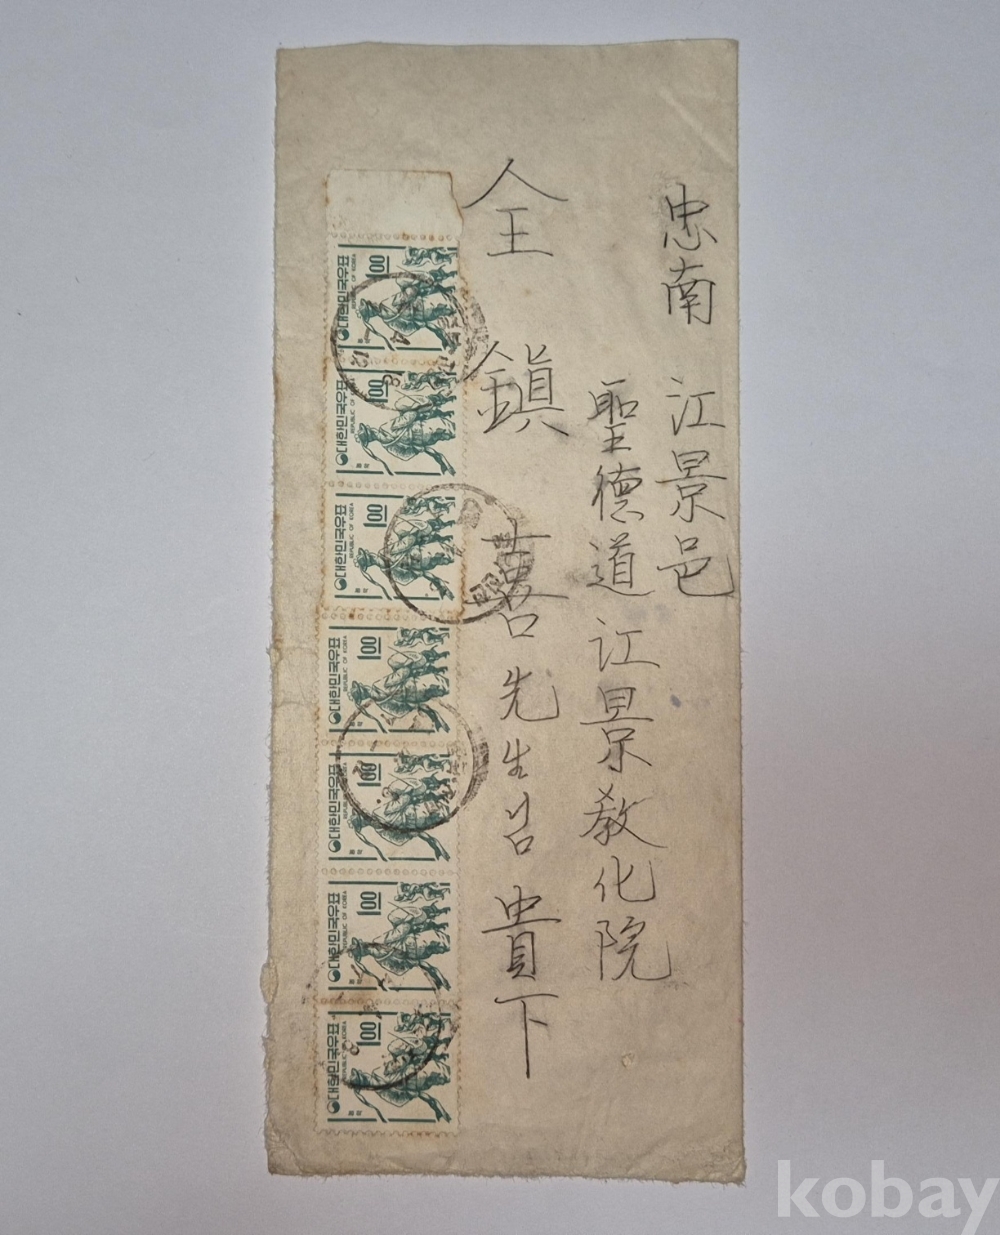 忠南 江景邑
聖德道 江景教化院
全 鎭 喜 先生님 貴下
대한민국우표
REPUBLIC OF KOREA
1.00
대한민국우표
REPUBLIC OF KOREA
1.00
대한민국우표
REPUBLIC OF KOREA
1.00
대한민국우표
REPUBLIC OF KOREA
1.00
대한민국우표
REPUBLIC OF KOREA
1.00
대한민국우표
REPUBLIC OF KOREA
1.00
대한민국우표
REPUBLIC OF KOREA
1.00
kobay